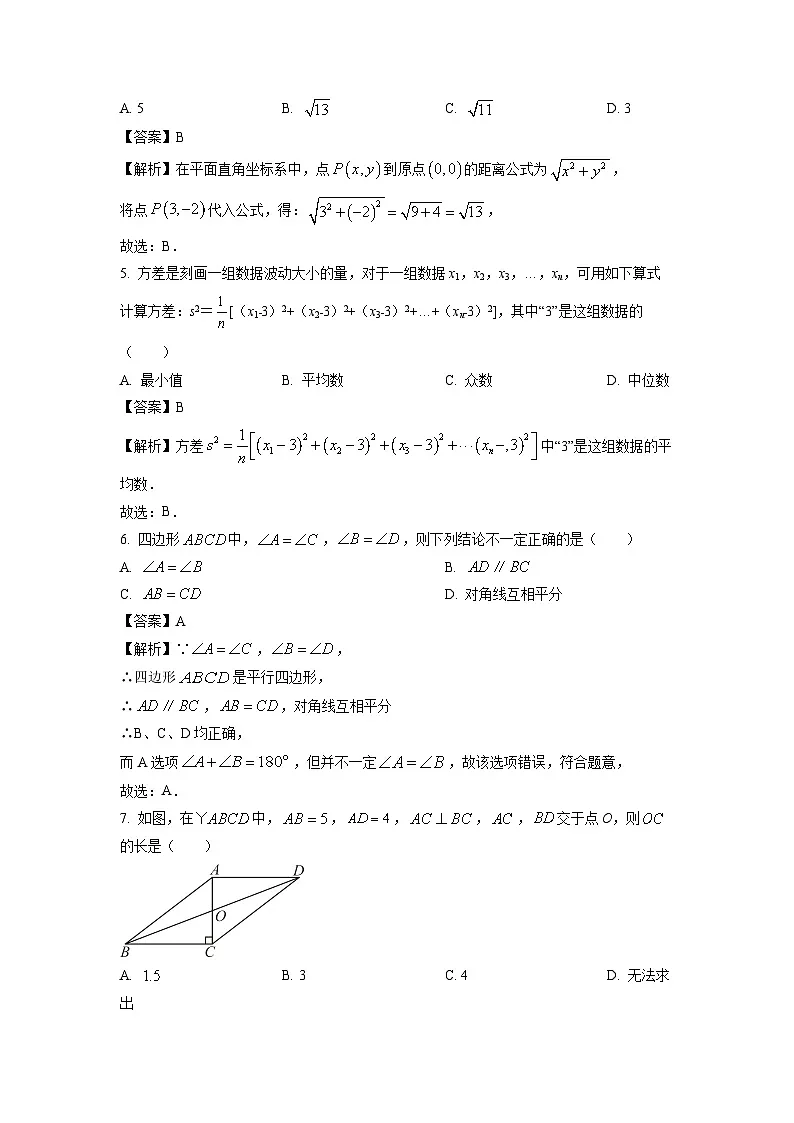 A. 5 B. √13 C. √11 D. 3
【答案】B
【解析】在平面直角坐标系中，点P(x,y)到原点(0,0)的距离公式为√(x²+y²)，
将点P(3,−2)代入公式，得：√(3²+(−2)²)=√(9+4)=√13，
故选：B．
5. 方差是刻画一组数据波动大小的量，对于一组数据 x₁，x₂，x₃，…，xₙ，可用如下算式
计算方差：s²＝1/n[（x₁-3）²+（x₂-3）²+（x₃-3）²+…+（xₙ-3）²]，其中“3”是这组数据的
（　　）
A. 最小值 B. 平均数 C. 众数 D. 中位数
【答案】B
【解析】方差s²=1/n[(x₁−3)²+(x₂−3)²+(x₃−3)²+⋯(xₙ−,3)²]中“3”是这组数据的平
均数．
故选：B．
6. 四边形ABCD中，∠A=∠C，∠B=∠D，则下列结论不一定正确的是（　　）
A. ∠A=∠B B. AD∥BC
C. AB=CD D. 对角线互相平分
【答案】A
【解析】∵∠A=∠C，∠B=∠D，
∴四边形ABCD是平行四边形，
∴AD∥BC，AB=CD，对角线互相平分
∴B、C、D均正确，
而A选项∠A+∠B=180°，但并不一定∠A=∠B，故该选项错误，符合题意，
故选：A．
7. 如图，在丫ABCD中，AB=5，AD=4，AC⊥BC，AC，BD交于点O，则OC
的长是（　　）
A D
O
B C
A. 1.5 B. 3 C. 4 D. 无法求
出